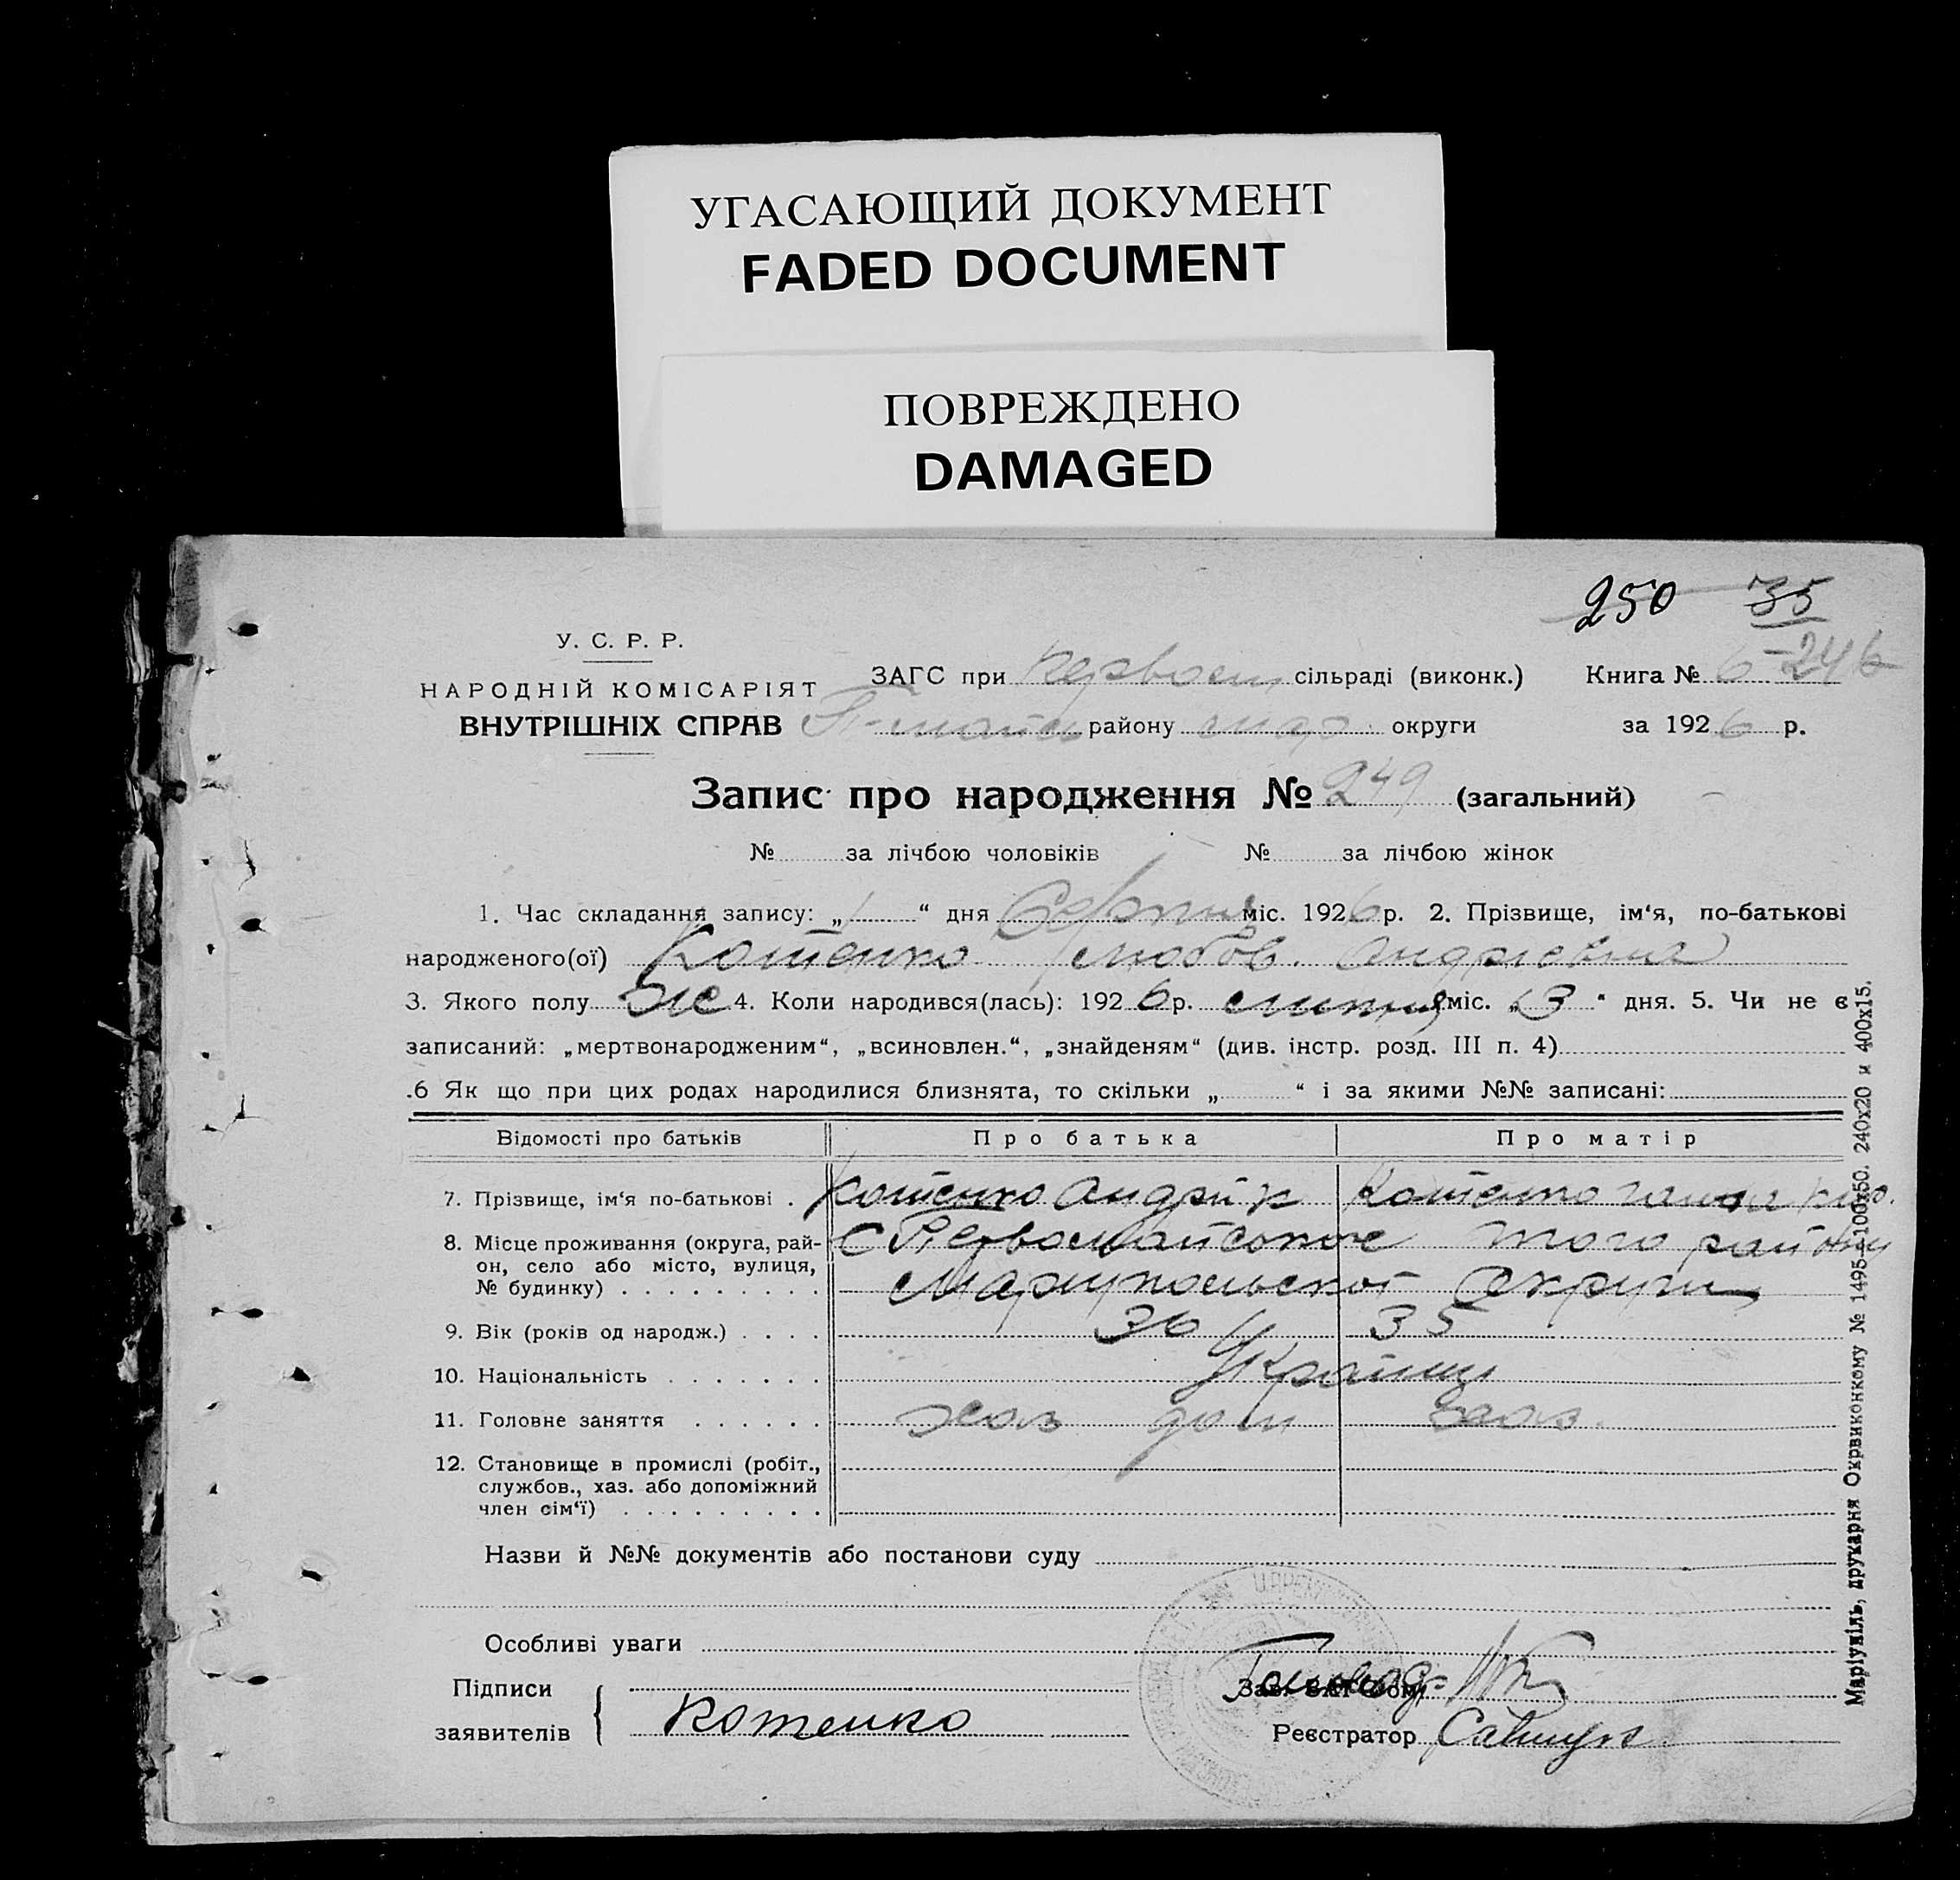 УГАСАЮЩИЙ ДОКУМЕНТ
FADED DOCUMENT
ПОВРЕЖДЕНО
DAMAGED
250 35
У. С. Р. Р.
НАРОДНІЙ КОМІСАРІЯТ
ВНУТРІШНІХ СПРАВ
ЗАГС при Первом сільраді (виконк.) Книга № 6-246
П-майск району Мар. округи за 1926 р.
Запис про народження № 249 (загальний)
№ за лічбою чоловіків № за лічбою жінок
1. Час складання запису: „1“ дня Серпня міс. 1926 р. 2. Прізвище, ім‘я, по-батькові
народженого(ої) Котенко Любов. Андріевна
3. Якого полу Же 4. Коли народився(лась): 1926 р. липня міс. „3“ дня. 5. Чи не є
записаний: „мертвонародженим“, „всиновлен.“, „знайденям“ (див. інстр. розд. III п. 4)
.6 Як що при цих родах народилися близнята, то скільки „ “ і за якими №№ записані:
Відомості про батьків Про батька Про матір
7. Прізвище, ім‘я по-батькові . Котенко Андрій К Котенко Ганна
8. Місце проживання (округа, рай-
он, село або місто, вулиця,
№ будинку) . . . . . . . . .
С Первомайське того району
Маріупольскої Округи
9. Вік (років од народж.) . . . . 36 35
10. Національність . . . . . . . Україн
11. Головне заняття . . . . . . хаз дом хаз.
12. Становище в промислі (робіт.,
службов., хаз. або допоміжний
член сім‘ї) . . . . . . . . .
Назви й №№ документів або постанови суду
Особливі уваги
Підписи
заявителів
Котенко
Зав. ЗАГС‘ом
Реєстратор
Маріупіль, друкарня Окрвиконкому № 1495—100х50. 240х20 и 400х15.